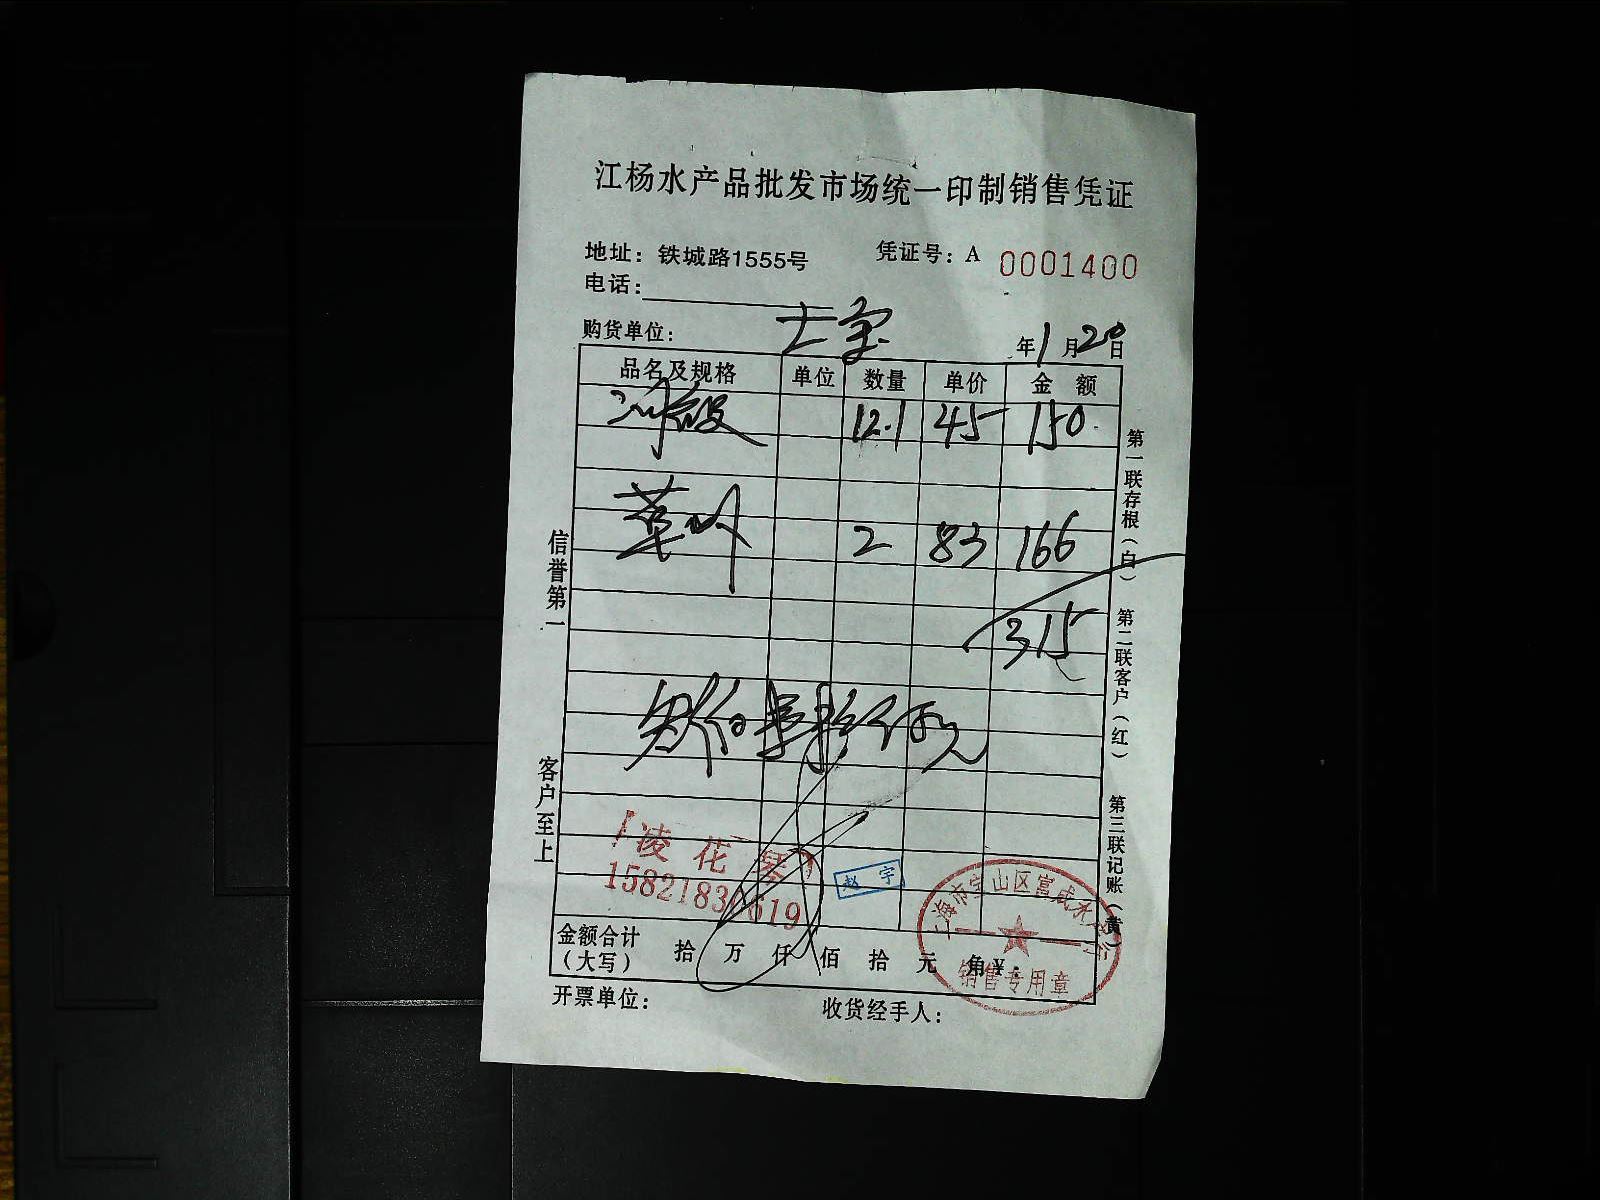 江杨水产品批发市场统一印制销售凭证
地址：铁城路1555号
凭证号：A 0001400
电话：
购货单位：
年1月20日
品名及规格 单位 数量 单价 金额
12.1 45 150
2 83 166
315
信誉第一
客户至上
第一联存根（白） 第二联客户（红） 第三联记账（黄）
凌花琴
赵宇
上海市宝山区富成水产行
销售专用章
金额合计（大写） 拾 万 仟 佰 拾 元 角 ¥：
开票单位：
收货经手人：